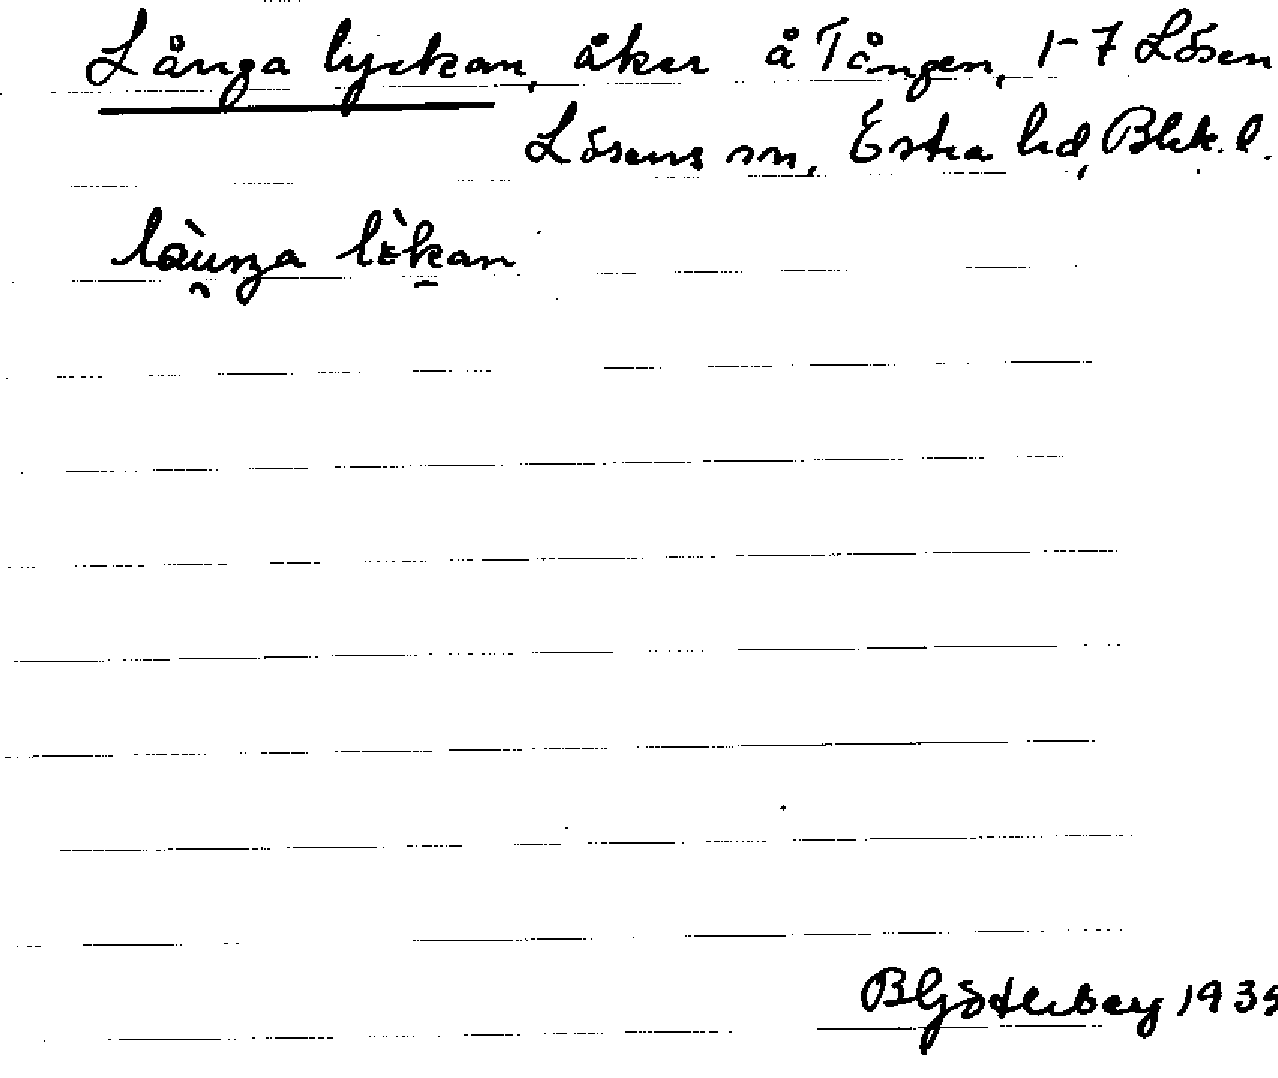 Långa lyckan, åker å Tången, 1-7 Lösen
Lösens sn, Östra hd, Blek. l.
BGöterberg 193